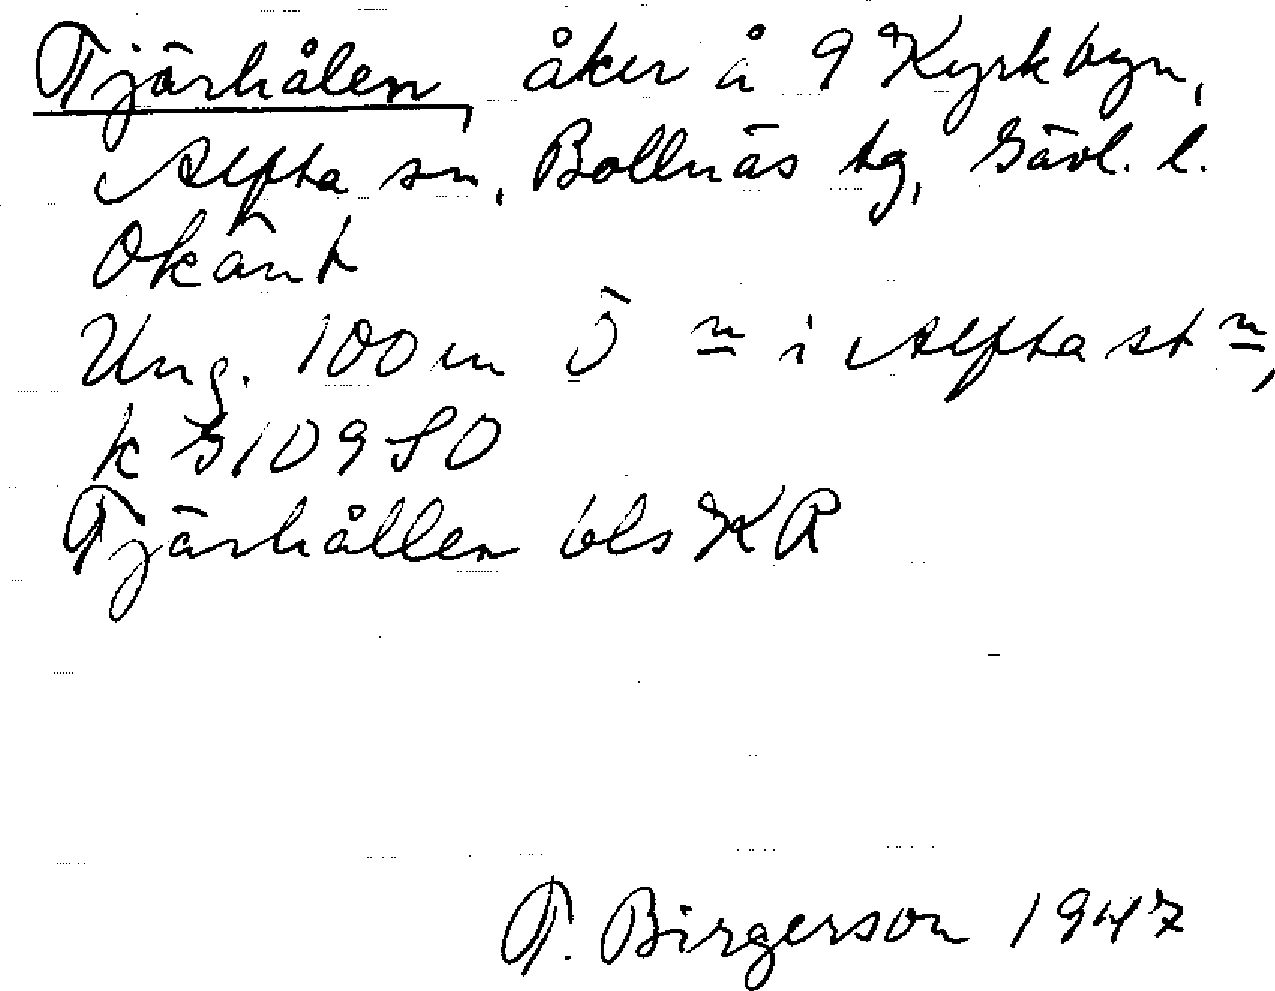 Tjärhålen, åker å 9 Kyrkbyn,
Alfta sn, Bollnäs tg, Gävl. l.
Okänt
Ung. 100 m Ö n i Alfta st n,
k G 109 SO
Tjärhållen bls KR
T. Birgerson 1947